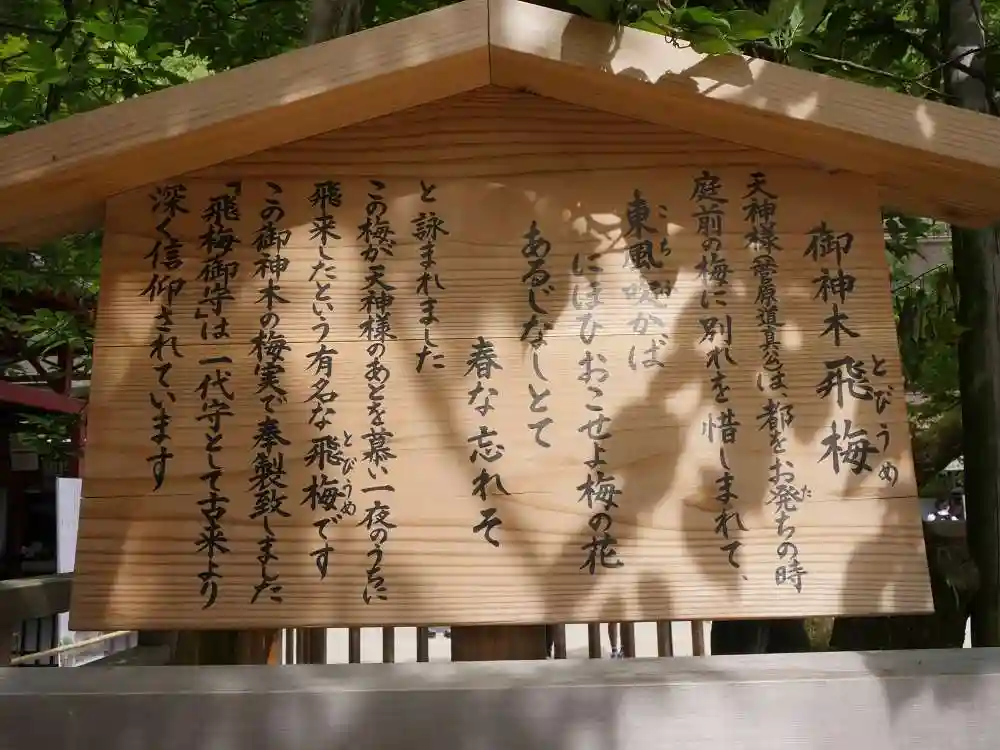 御神木 飛梅
とびうめ
天神様(菅原道真公)は、都をお発ちの時
た
庭前の梅に別れを惜しまれて、
東風吹かば
こち
にほひおこせよ梅の花
あるじなしとて
春な忘れそ
と詠まれました
この梅が天神様のあとを慕い一夜のうちに
飛来したという有名な飛梅です
とびうめ
この御神木の梅実で奉製致しました
「飛梅御守」は一代守として古来より
深く信仰されています